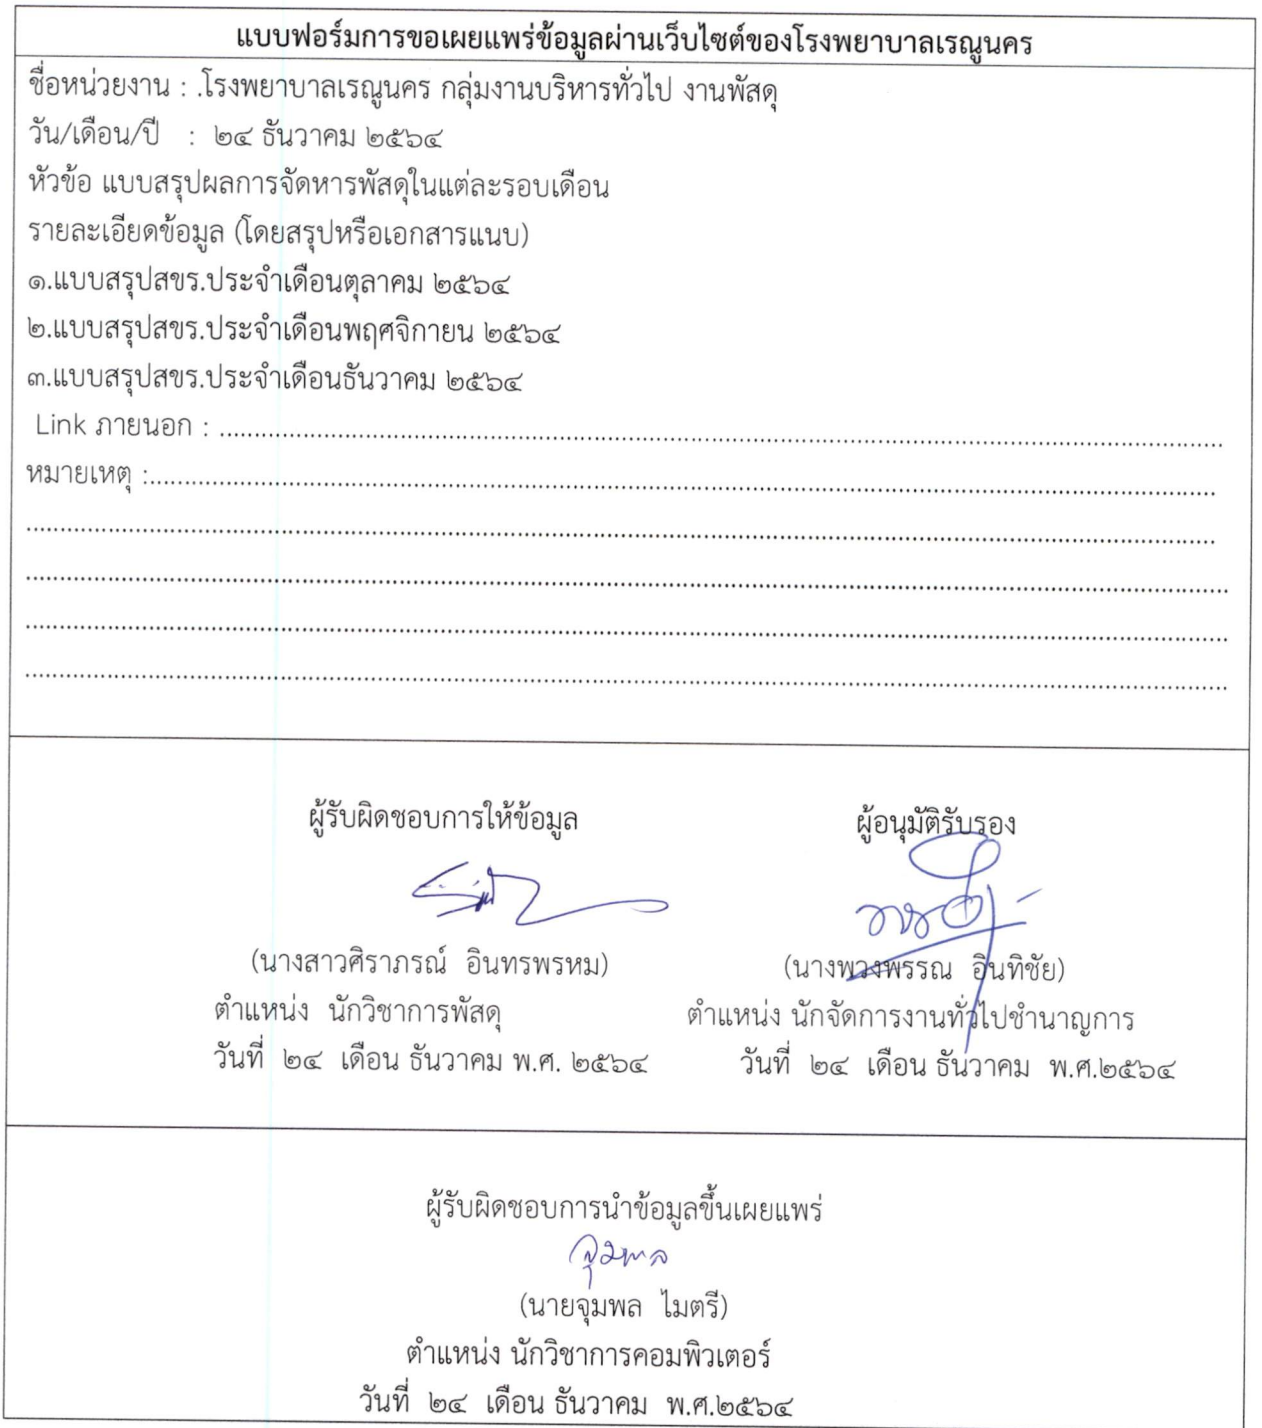 แบบฟอร์มการขอเผยแพร่ข้อมูลผ่านเว็บไซต์ของโรงพยาบาลเรณูนคร
ชื่อหน่วยงาน : .โรงพยาบาลเรณูนคร กลุ่มงานบริหารทั่วไป งานพัสดุ
วัน/เดือน/ปี : ๒๔ ธันวาคม ๒๕๖๔
หัวข้อ แบบสรุปผลการจัดหารพัสดุในแต่ละรอบเดือน
รายละเอียดข้อมูล (โดยสรุปหรือเอกสารแนบ)
๑.แบบสรุปสขร.ประจำเดือนตุลาคม ๒๕๖๔
๒.แบบสรุปสขร.ประจำเดือนพฤศจิกายน ๒๕๖๔
๓.แบบสรุปสขร.ประจำเดือนธันวาคม ๒๕๖๔
Link ภายนอก : ........................................
หมายเหตุ :........................................
ผู้รับผิดชอบการให้ข้อมูล ผู้อนุมัติรับรอง
(นางสาวศิราภรณ์ อินทรพรหม) (นางพวงพรรณ อินทิชัย)
ตำแหน่ง นักวิชาการพัสดุ ตำแหน่ง นักจัดการงานทั่วไปชำนาญการ
วันที่ ๒๔ เดือน ธันวาคม พ.ศ. ๒๕๖๔ วันที่ ๒๔ เดือน ธันวาคม พ.ศ.๒๕๖๔
ผู้รับผิดชอบการนำข้อมูลขึ้นเผยแพร่
จุมพล
(นายจุมพล ไมตรี)
ตำแหน่ง นักวิชาการคอมพิวเตอร์
วันที่ ๒๔ เดือน ธันวาคม พ.ศ.๒๕๖๔